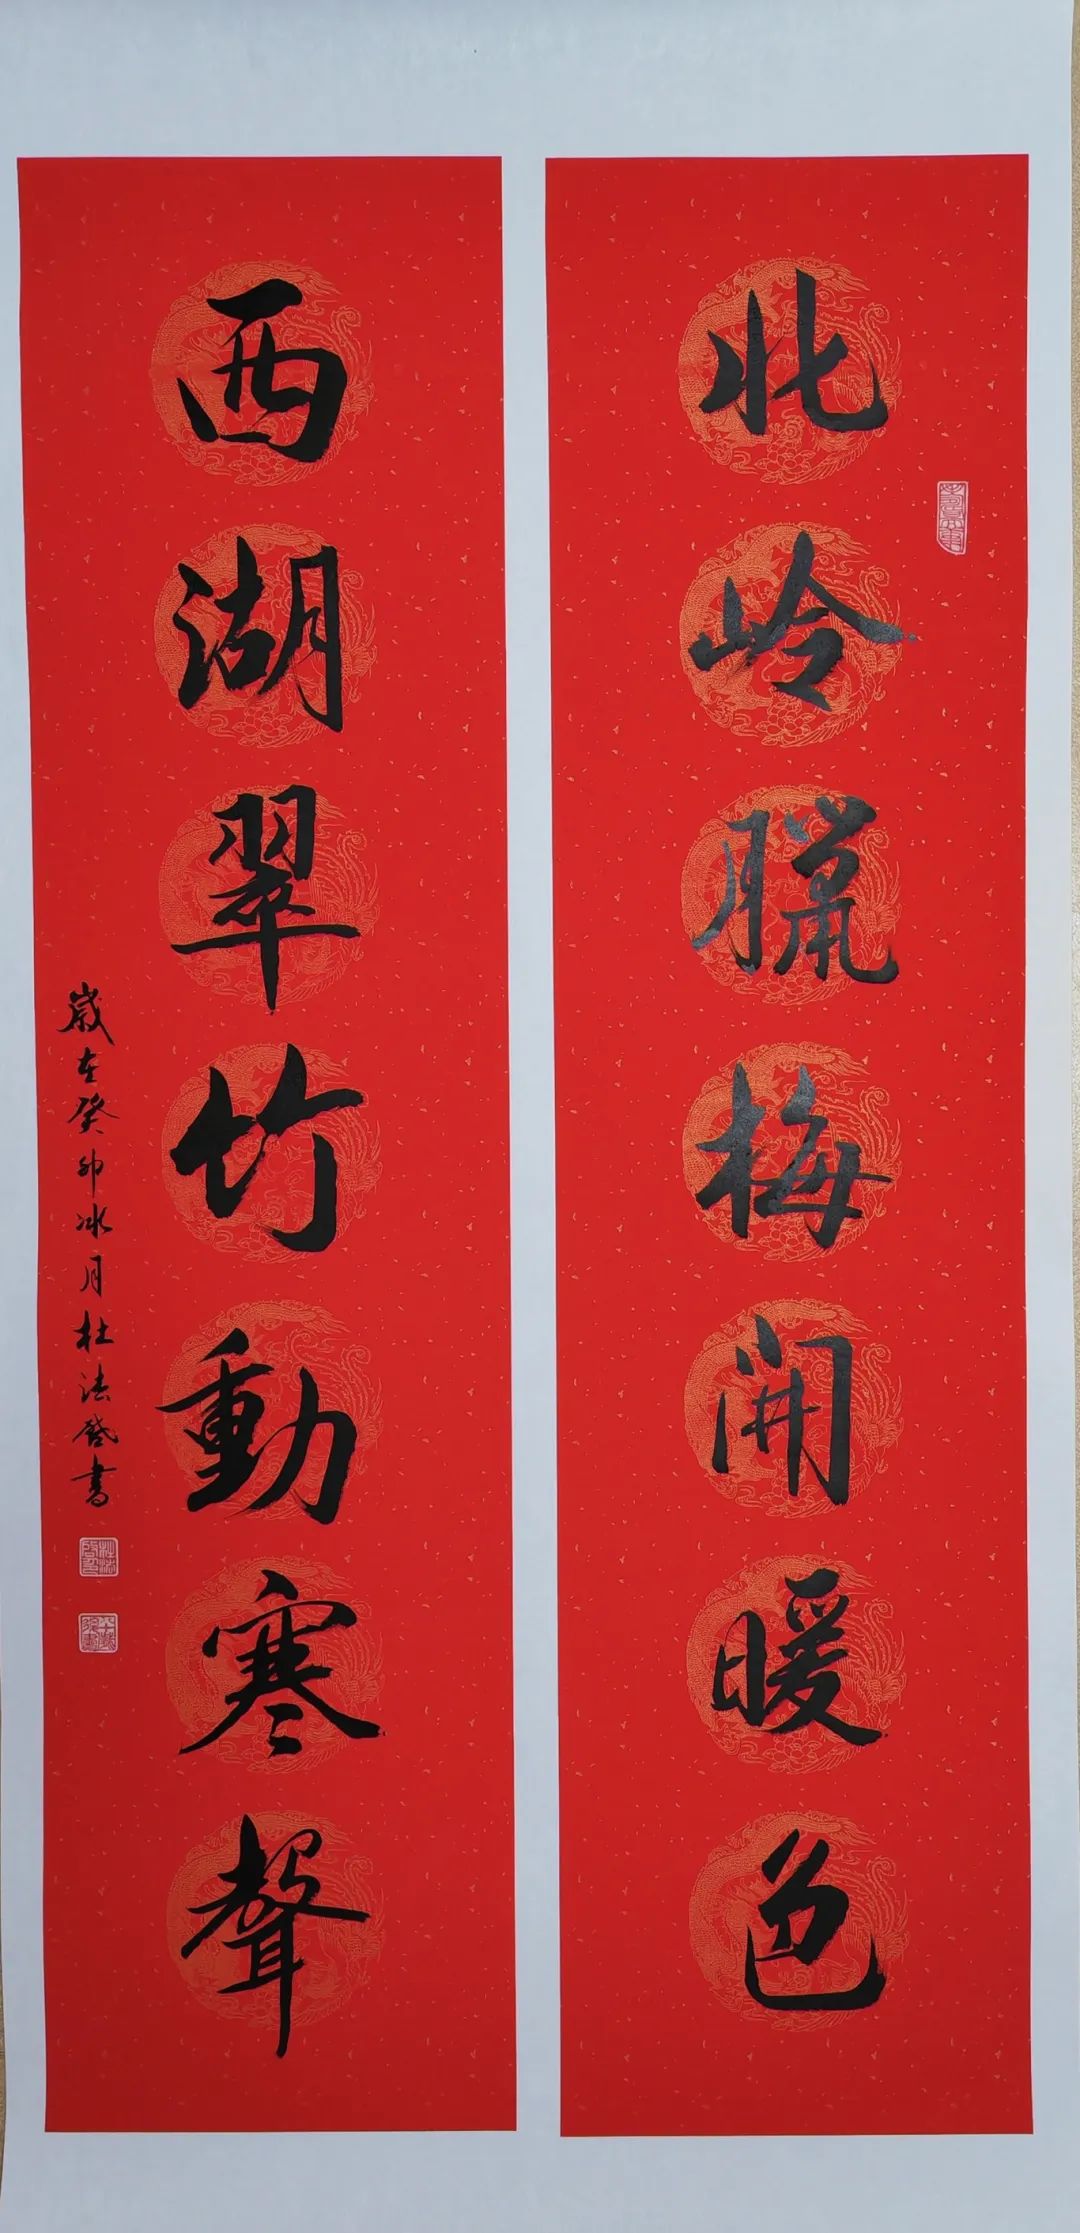 北岭臘梅開暖色
西湖翠竹動寒聲
歲在癸卯冰月杜法啓書